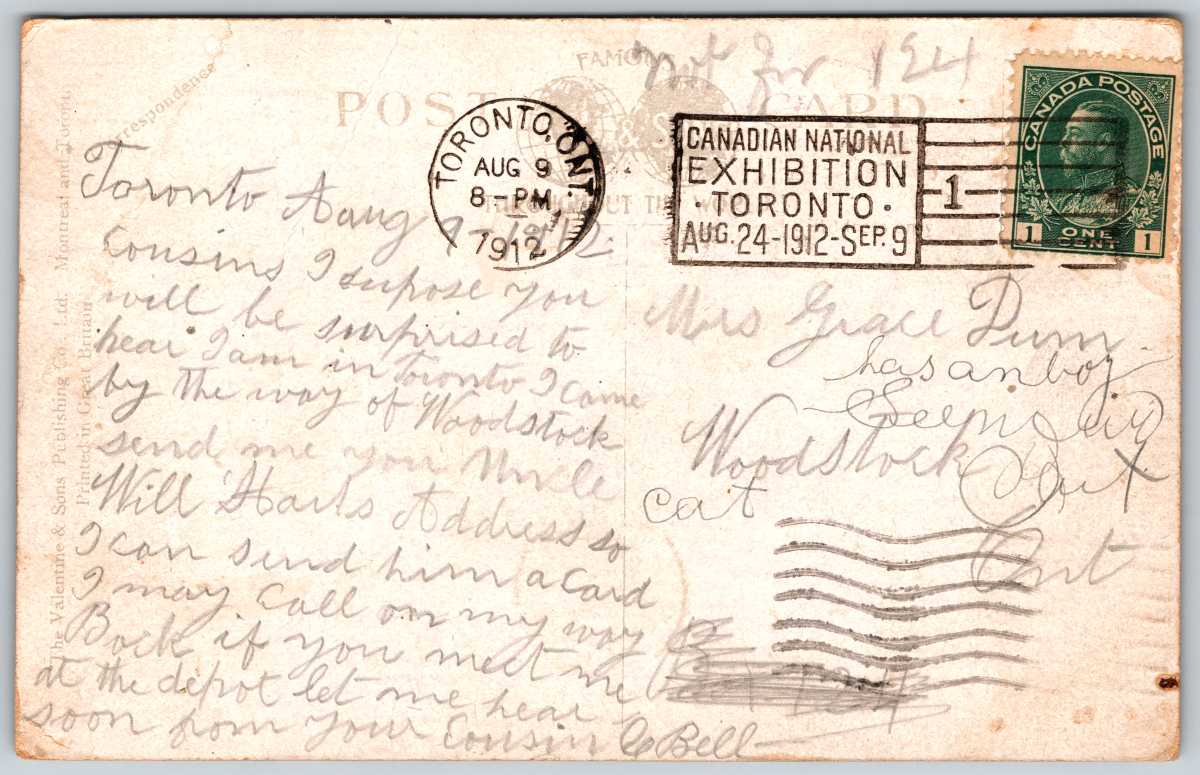 Correspondence
POST CARD
FAMOU
& S
THROUGHOUT THE W
Not For 124
TORONTO, ONT.
AUG 9
8-PM
1912
CANADIAN NATIONAL
EXHIBITION
· TORONTO ·
AUG. 24-1912-SEP. 9
1
CANADA POSTAGE
1 ONE CENT 1
The Valentine & Sons Publishing Co., Ltd. Montreal and Toronto
Printed in Great Britain
Toronto Aaug 9-1912.
Cousins I supose you
will be surprised to
hear I am in Toronto I came
by the way of Woodstock
send me you Uncle
Will Harts Address so
I can send him a Card
I may Call on my way
Back if you meet me
at the depot let me hear
soon from your Cousin C Bell
Mrs Grace Dum
has an boy
Woodstock
cat
Ont